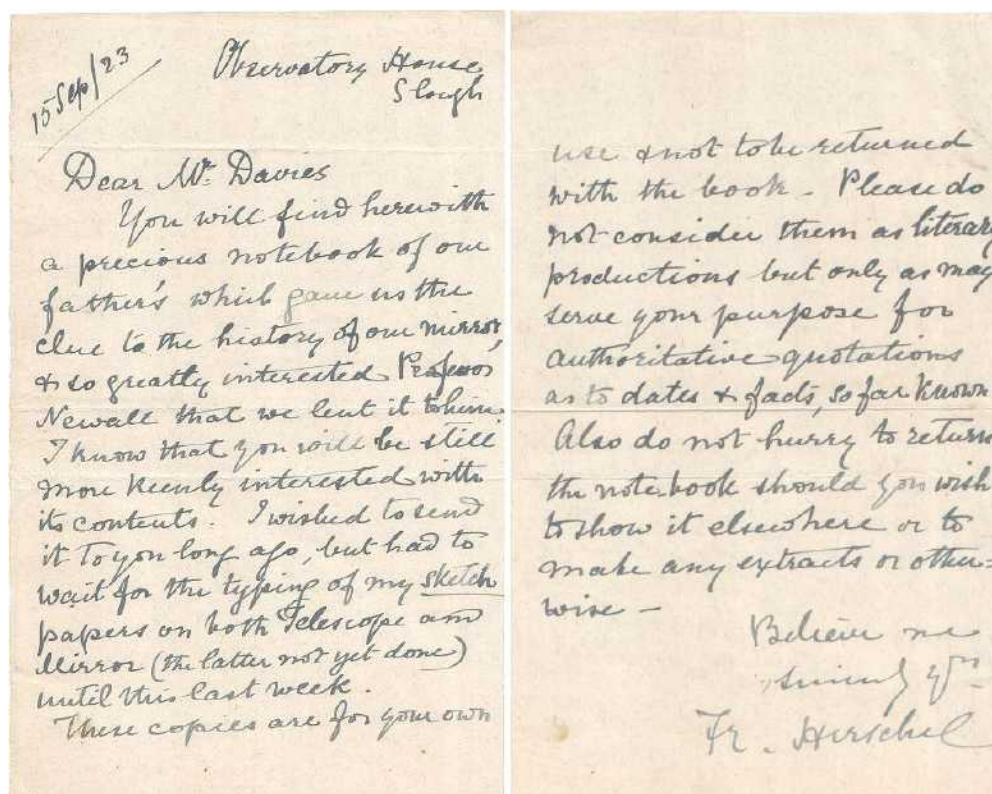 15 Sep/23
Observatory House
Slough
Dear Mr. Davies
You will find herewith
a precious notebook of our
father's which gave us the
clue to the history of our mirror,
& so greatly interested Professor
Newall that we lent it to him.
I know that you will be still
more keenly interested with
its contents. I wished to send
it to you long ago, but had to
wait for the typing of my sketch
papers on both Telescope and
Mirror (the latter not yet done)
until this last week.
These copies are for your own
use & not to be returned
with the book. Please do
not consider them as literary
productions but only as may
serve your purpose for
authoritative quotations
as to dates & facts, so far known
Also do not hurry to return
the notebook should you wish
to show it elsewhere or to
make any extracts or other=
wise –
Believe me
sincerely yrs
Fr. Herschel